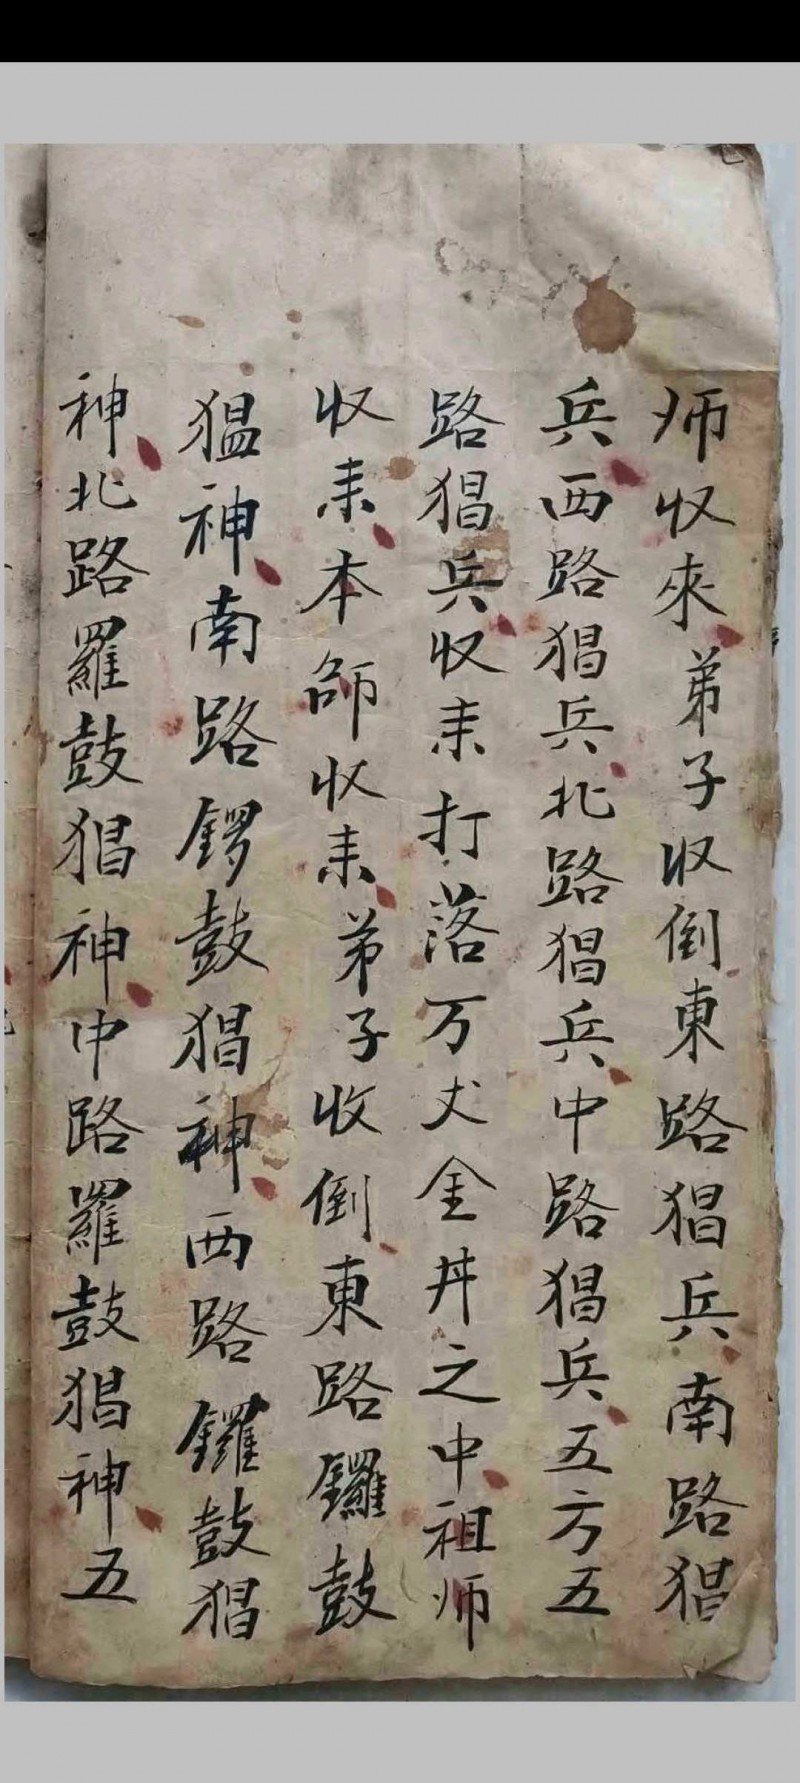 师収來弟子収倒東路猖兵南路猖
兵西路猖兵北路猖兵中路猖兵五方五
路猖兵収耒打落万丈金井之中祖师
収耒本師収耒弟子收倒東路鑼鼓
猖神南路鑼鼓猖神西路鑼鼓猖
神北路羅鼓猖神中路羅鼓猖神五